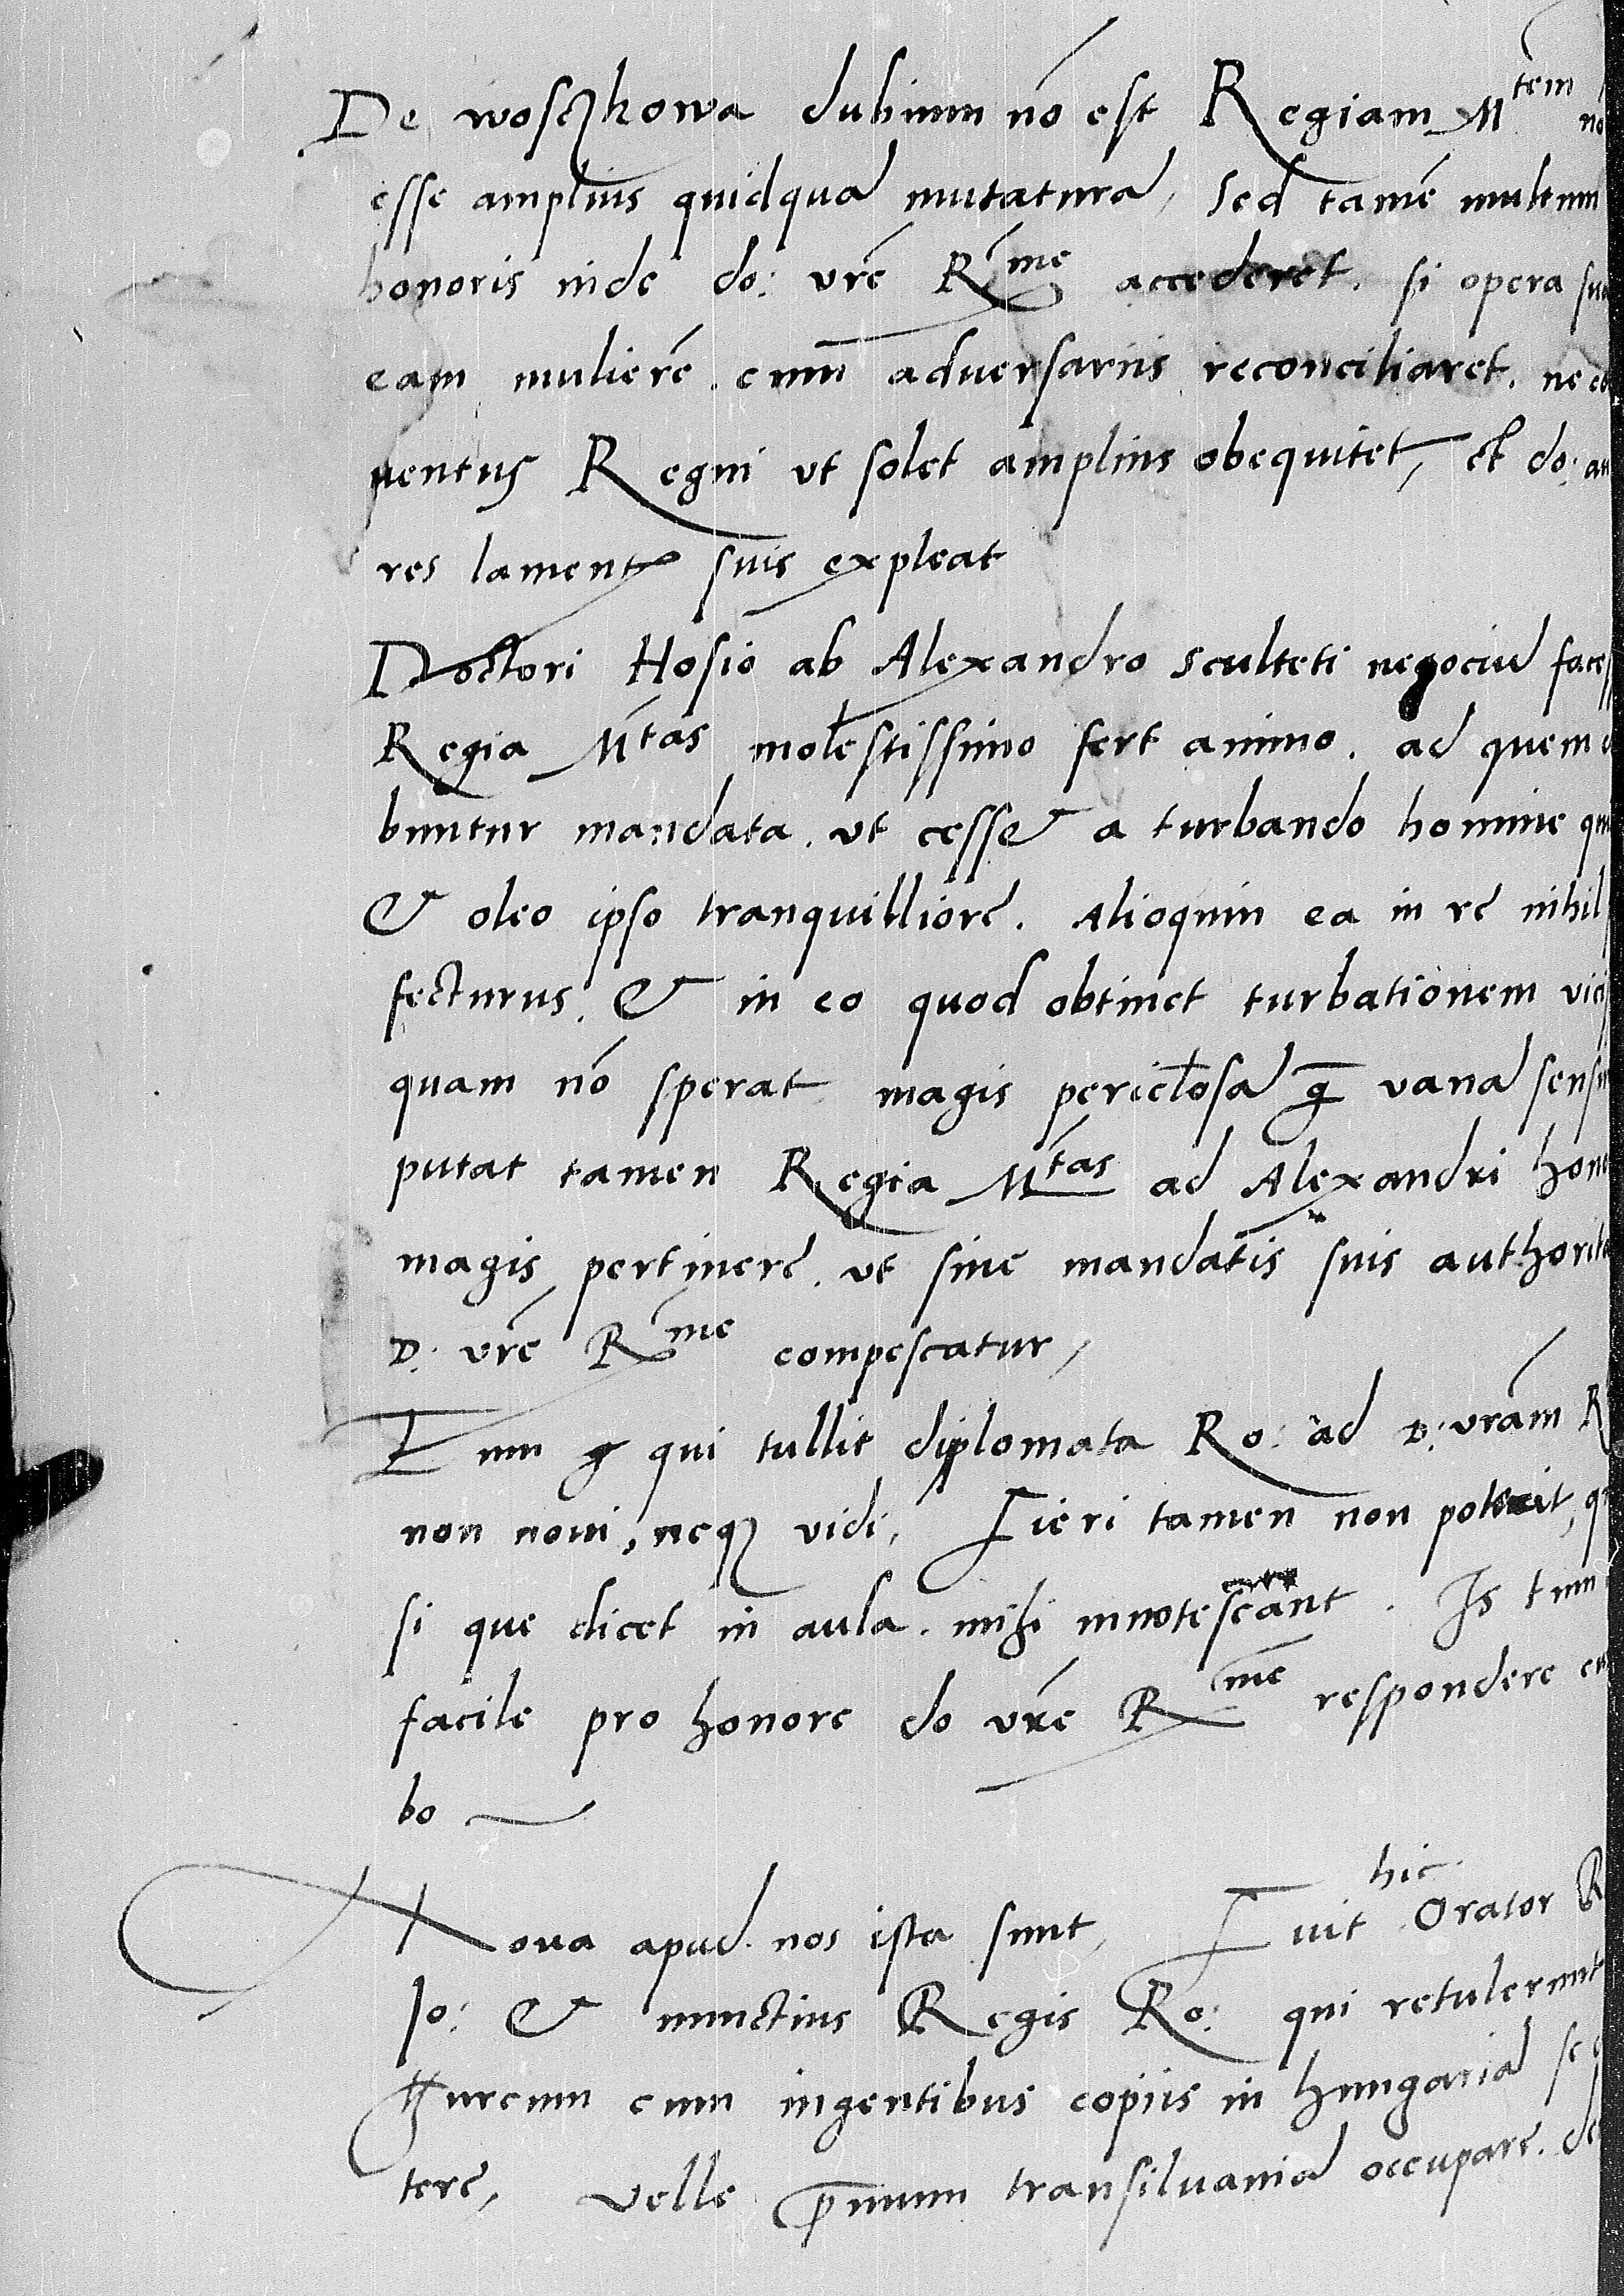 De wosczkowa dubium nō est Regiam M^tem
esse amplius quidquā mutaturā, Sed tamē multum
honoris inde do: vrē R^me accederet. si opera
eam mulierē cum adversariis reconciliaret. ne
ventus Regni ut solet amplius obequitet, et do:
res lament suis expleat
Doctori Hosio ab Alexandro sculteti negociū
Regia M^tas molestissimo fert animo. ad quem
buntur mandata. ut cesset a turbando homine
& oleo ipso tranquilliorē. Alioquin ea in re nihil
fecturus. & in eo quod obtinet turbationem
quam nō sperat magis periclosā q̄ vanā
putat tamen Regia M^tas ad Alexandri
magis pertinere. ut sine mandatis suis
D: vrē R^me compescatur,
Eum qui tullit diplomata Ro: ad D: vrām
non novi, neq3 vidi, Fieri tamen non poterit,
si que dicet in aula. mihi innotescant. Is
facile pro honore do vrē R^me respondere
bo
Nova apud nos ista sunt, Fuit hic Orator
Jo: & nunctius Regis Ro: qui retulerunt
Turcum cum ingentibus copiis in hungariā
tere, velle p̄mum transilvaniā occupare.